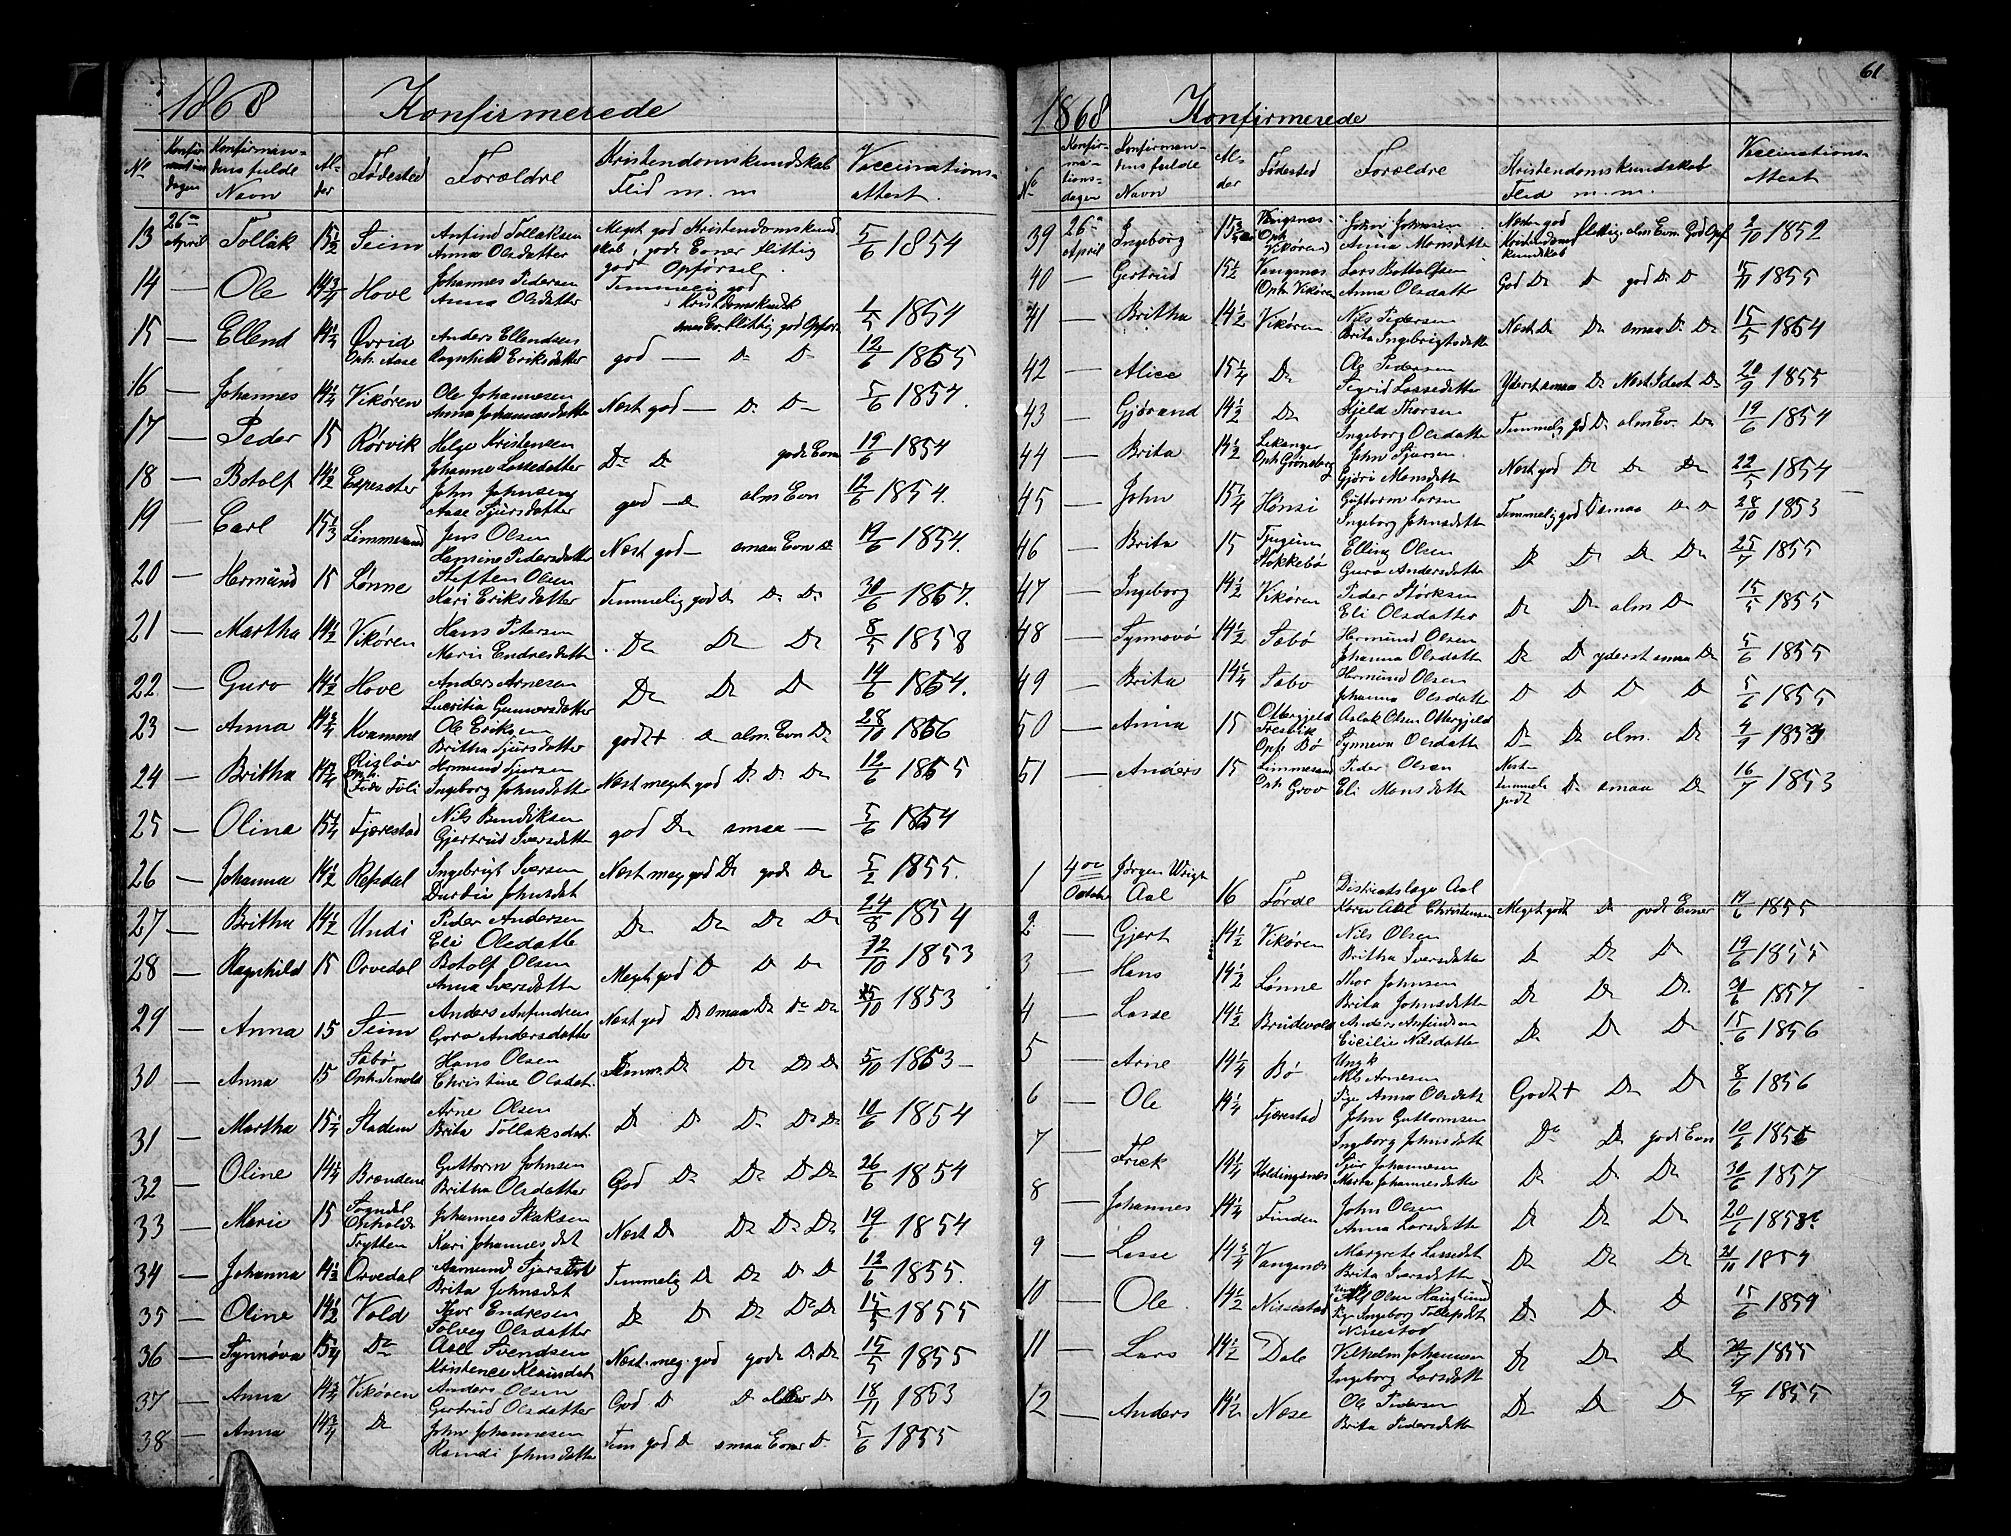 1868 Konfirmerede
No Konfirmationsdagen Konfirmandens fulde Navn Alder Fødested Forældre Kristendomskundskab Flid m. m. Vaccinations-Attest.
13 26de April Tollak 15 1/2 Seim Anfind Tollaksen Anna Olsdatter Meget god Kristendomskundskab, gode Evner flittig god Opførsel 5/6 1854
14 — Ole 14 3/4 Hove Johannes Pedersen Anna Olsdatter Temmelig god Kristdomskundsk smaa Ev. flittig god Opfør 1/5 1854
15 — Ellend 14 1/4 Øvrid Oph. Aase Anders Ellendsen Ragnhild Eriksdatter god — Do Do 12/6 1855
16 — Johannes 14 1/4 Vikøren Ole Johannesen Anna Johannesdatter Næst god — Do Do 5/6 1854.
17 — Peder 15 Rørvik Helge Kristensen Johanne Lassedatter Do Do gode Evne 19/6 1854
18 — Botolf 14 1/2 Espeseter John Johnsen Aase Sjursdatter god — alm Evn 12/6 1854.
19 — Carl 15 1/3 Limmesand Jens Olsen Hansine Pedersdatter Næst god — smaa Evn Do 19/6 1854.
20 — Hermund 15 Lønne Steffen Olsen Kari Eriksdatter Temmelig god Do Do Do 30/6 1857.
21 — Martha 14 1/2 Vikøren Hans Petersen Maris Endresdatter Do Do Do 8/5 1858
22 — Guro 14 1/2 Hove Anders Arnesen Lucritia Gunnersdatter Do Do Do 14/6 1854.
23 — Anna 14 3/4 Kvamme Ole Eriksen Britha Sjursdatter godt+ Do alm. Evn Do 28/10 1856
24 — Britha 14 3/4 Hermund Sjursen Ingeborg Johnsdatter Næst meget god Do Do Do 12/6 1855
25 — Olina 15 1/4 Fjærestad Nils Bendiksen Gjertrud Iversdatter god Do smaa — 5/6 1854
26 — Johanna 14 1/2 Refsdal Ingebrigt Iversen Durdei Johnsdat Næst meg god Do gode Do 5/2 1855.
27 — Britha 14 1/2 Undi Peder Andersen Eli Olsdatte Do Do Do Do 24/8 1854
28 — Ragnhild 15 Orvedal Botolf Olsen Anna Iversdatte Meget god Do Do Do 12/10 1853
29 — Anna 15 Seim Anders Anfindsen Goro Andersdatter Næst god Do smaa Do Do Do 15/10 1853
30 — Anna 15 Sæbø Oph. Tenold Hans Olsen Christine Olsdat. Temm. Do Do Do Do 5/10 1853 —
31 — Martha 15 1/4 Stadem Arne Olsen Brita Tollaksdat. Do Do Do Do Do 10/6 1854
32 — Oline 14 1/4 Brændene Guttorm Johnsen Britha Olsdatter God Do Do Do Do 26/6 1854
33 — Marie 15 Sogndal Opholds Frytten Johannes Skaksen Kari Johannesdat Næst Do Do Do Do 19/6 1854
34 — Johanna 14 1/2 Orvedal Aamund Sjursen Brita Johnsdat Temmelig Do Do Do Do 12/6 1855.
35 — Oline 14 1/2 Vold Thor Endresen Solveg Olsdatter Do Do Do Do Do 15/5 1855
36 — Synnøva 15 1/4 Do Axel Svendsen Kristence Klausdat Næst. meg. god gode Do Do 15/5 1855
37 — Anna 14 3/4 Vikøren Anders Olsen Gertrud Olsdatter God Do Do Do 18/11 1853
38 — Anna 14 3/4 Do John Johannesen Randi Johnsdatte Tem god Do smaa Evner Do 5/6 1855
61
1868 Konfirmerede
No Konfirmationsdagen Konfirmandens fulde Navn Alder Fødested Forældre Kristendomskundskab Flid m. m. Vaccinations-Attest
39 26de April Ingeborg 15 Vangsnes Oph Vikøren Johan Johnsen Anna Monsdatte Næst god Kristendomskundskab flittig, alm Evn. God Opf 2/10 1852
40 — Gertrud 15 1/2 Vangsnes Oph Vikøren Lars Bottolfsen Anna Olsdatte God Do Do god Do Do 15/11 1855
41 — Britha 14 1/2 Vikøren Nils Pedersen Brita Ingebrigtsdatte Næst Do Do smaa Do Do 15/5 1854
42 — Alice 15 1/4 Do Ole Pedersen Sigrid Lassedatte Yderst smaa Do Næst Do 20/9 1855
43 — Gjørand 14 1/2 Do Kjeld Thorsen Ingeborg Olsdatte Temmelig god Do alm Ev. Do 19/6 1854
44 — Brita 14 1/2 Lekanger Oph Grønsberg John Sjursen Gjøri Monsdatt Næst god Do Do Do 22/5 1854
45 — John 15 1/4 Hønsi Guttorm Larsen Ingeborg Johnsdatte Temmelig god Do smaa Do Do 28/10 1853
46 — Brita 15 Tjugum Stokkebø Elling Olsen Guro Andersdatte Do Do Do Do 25/7 1855
47 — Ingeborg 14 1/2 Vikøren Peder Størksen Eli Olsdatter Do Do alm Do 15/5 1855
48 — Synnøvø 14 1/2 Sæbø Hermund Olsen Johanna Olsdatte Do Do yderst smaa Do 5/6 1855
49 — Brita 14 1/4 Sæbø Hermund Olsen Johanna Olsdatte Do Do Do Do 5/6 1855
50 — Anna 15 Ottergjeld Fresvik Oph Bø Aslak Olsen Ottergjeld Synneva Olsdatte Do Do alm. Do 4/9 1854
51 — Anders 15 Limmesand Oph Grov Peder Olsen Eli Monsdatte Næst temmeli godt Do smaa Do 16/7 1853
1 4de October Jørgen Wrigt Aal 16 Førde Districtslæge Aal Karen Christensen Meget godt Do gode Evner 14/6 1855
2 — Gjert 14 1/2 Vikøren Nils Olsen Britha Iversdatte Do Do Do 19/6 1855
3 — Hans 14 1/2 Lønne Thor Johnsen Brita Johnsdatte Do Do Do 30/6 1857
4 — Lasse 14 1/2 Brudevold Anders Anfindsen Cicilie Nilsdatte Do Do Do 15/6 1856
5 — Arne 14 1/4 Bø Ungk Nils Arnesen Pige Anna Olsdatt Godt+ Do Do 8/6 1856
6 — Ole 14 1/4 Fjærestad John Guttormsen Ingeborg Johnsdatte Do Do gode Evn 10/6 1855
7 — Frick 14 1/4 Holdingsnes Sjur Johannesen Marta Johannesdatte Do Do Do 30/6 1857
8 — Johannes 14 1/4 Finden John Olsen Anna Larsdatte Do Do Do 20/6 1858
9 — Lasse 14 3/4 Vangsnes Margrete Lassedat Brita Iversdatte Do Do Do 21/11 1854
10 — Ole 14 1/2 Nissestad Ungk Olsen Hauglund Pige Ingeborg Nissestad Do Do Do 15/6 1854
11 — Lars 14 1/2 Dale Vilhelm Johannesen Ingeborg Larsdatte Do Do Do 30/7 1855
12 — Anders 14 1/2 Nese Ole Pedersen Brita Pedersdatte Do Do Do 9/7 1855